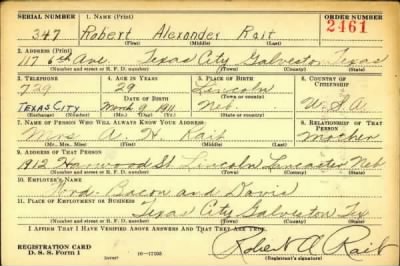 SERIAL NUMBER 1. NAME (Print) ORDER NUMBER
347 Robert Alexander Rait 2461
(First) (Middle) (Last)
2. ADDRESS (Print)
117 6th Ave. Texas City Galveston Texas
(Number and street or R. F. D. number) (Town) (County) (State)
3. TELEPHONE 4. AGE IN YEARS 5. PLACE OF BIRTH 6. COUNTRY OF CITIZENSHIP
729 29 Lincoln
DATE OF BIRTH (Town or county)
TEXAS CITY March 9 1911 Neb. U.S.A.
(Exchange) (Number) (Mo.) (Day) (Yr.) (State or country)
7. NAME OF PERSON WHO WILL ALWAYS KNOW YOUR ADDRESS 8. RELATIONSHIP OF THAT PERSON
Mrs A. W. Rait Mother
(Mr., Mrs., Miss) (First) (Middle) (Last)
9. ADDRESS OF THAT PERSON
1912 Harwood St Lincoln Lancaster Neb
(Number and street or R. F. D. number) (Town) (County) (State)
10. EMPLOYER'S NAME
Ford Bacon and Davis
11. PLACE OF EMPLOYMENT OR BUSINESS
Texas City Galveston Tex
(Number and street or R. F. D. number) (Town) (County) (State)
I AFFIRM THAT I HAVE VERIFIED ABOVE ANSWERS AND THAT THEY ARE TRUE.
REGISTRATION CARD
D. S. S. Form 1 16-17105 Robert A Rait
(Registrant's signature)